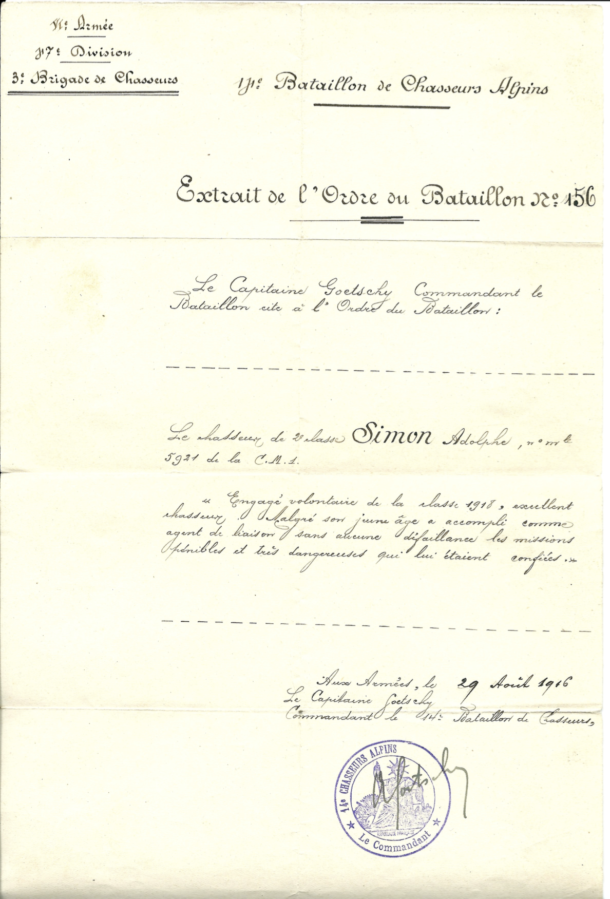 VIe Armée
47e Division
3e Brigade de Chasseurs
14e Bataillon de Chasseurs Alpins
Extrait de l'Ordre du Bataillon No 156
Le Capitaine Goetschy Commandant le
Bataillon cite à l'Ordre du Bataillon :
Le chasseur de 2e classe Simon Adolphe, no mle
5921 de la C.M.1.
" Engagé volontaire de la classe 1918, excellent
chasseur. Malgré son jeune âge a accompli comme
agent de liaison sans aucune défaillance les missions
pénibles et très dangereuses qui lui étaient confiées. "
Aux Armées, le 29 Août 1916
Le Capitaine Goetschy
Commandant le 14e Bataillon de Chasseurs,
14e CHASSEURS ALPINS
Goetschy
★ Le Commandant ★